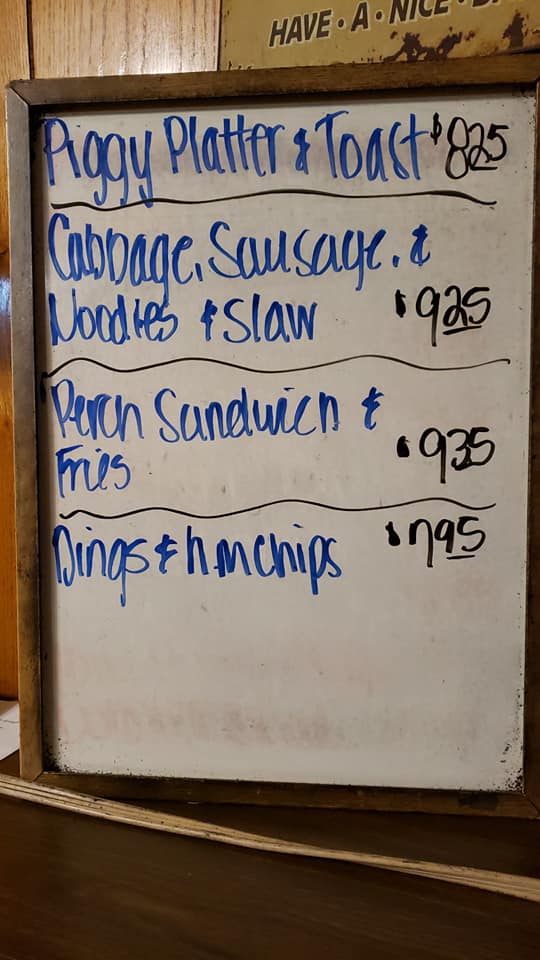 HAVE • A • NICE •
Piggy Platter & Toast $825
Cabbage, Sausage, &
Noodles & Slaw $925
Perch Sandwich &
Fries $935
Dings & h.m chips $795